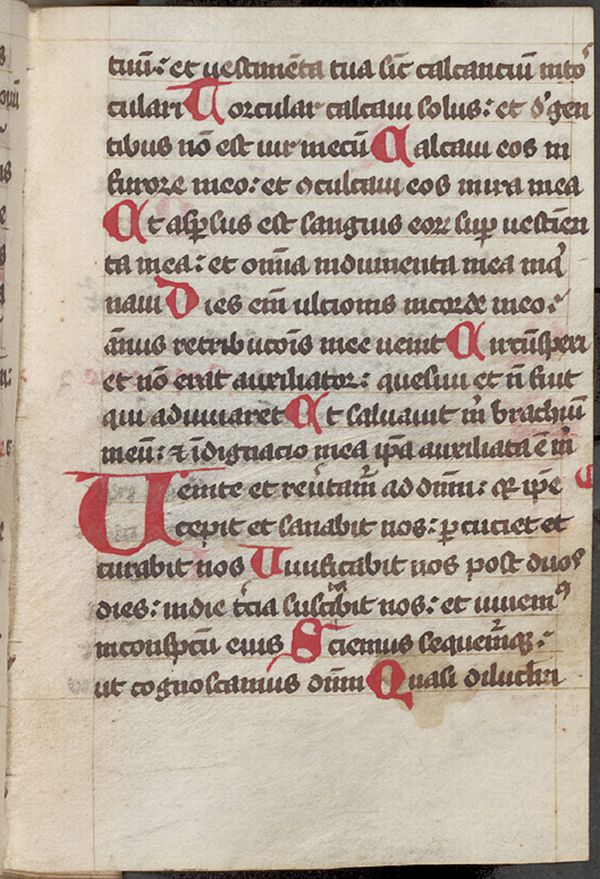 tuū: et uestimēta tua sic̄ calcanciū intor
culari Torcular calcaui solus: et d' gen
tibus nō est uir mecū Calcaui eos in
furore meo: et ꝯculcaui eos in ira mea
Et asꝑsus est sanguis eoꝝ suꝑ uestimen
ta mea: et om̄ia indumenta mea inq̄
naui Dies em̄ ulcionis in corde meo:
ānus retribucōis mee uenit Circūspexi
et nō erat auxiliator: quesiui et n̄ fuit
qui adiuuaret Et saluauit m̄ brachiū
meū: ⁊ īdignacio mea ip̄a auxiliata ē m̄
Uenite et reu̓tam̄ ad dn̄m: q̄ ip̄e
cepit et sanabit nos: ꝑcuciet et
curabit nos Uiuificabit nos post duos
dies: in die t̓cia suscitabit nos: et uiuem⁹
in conspc̄tu eius Sciemus sequem̄qꝫ:
ut cognoscamus dn̄m Quasi diluculū